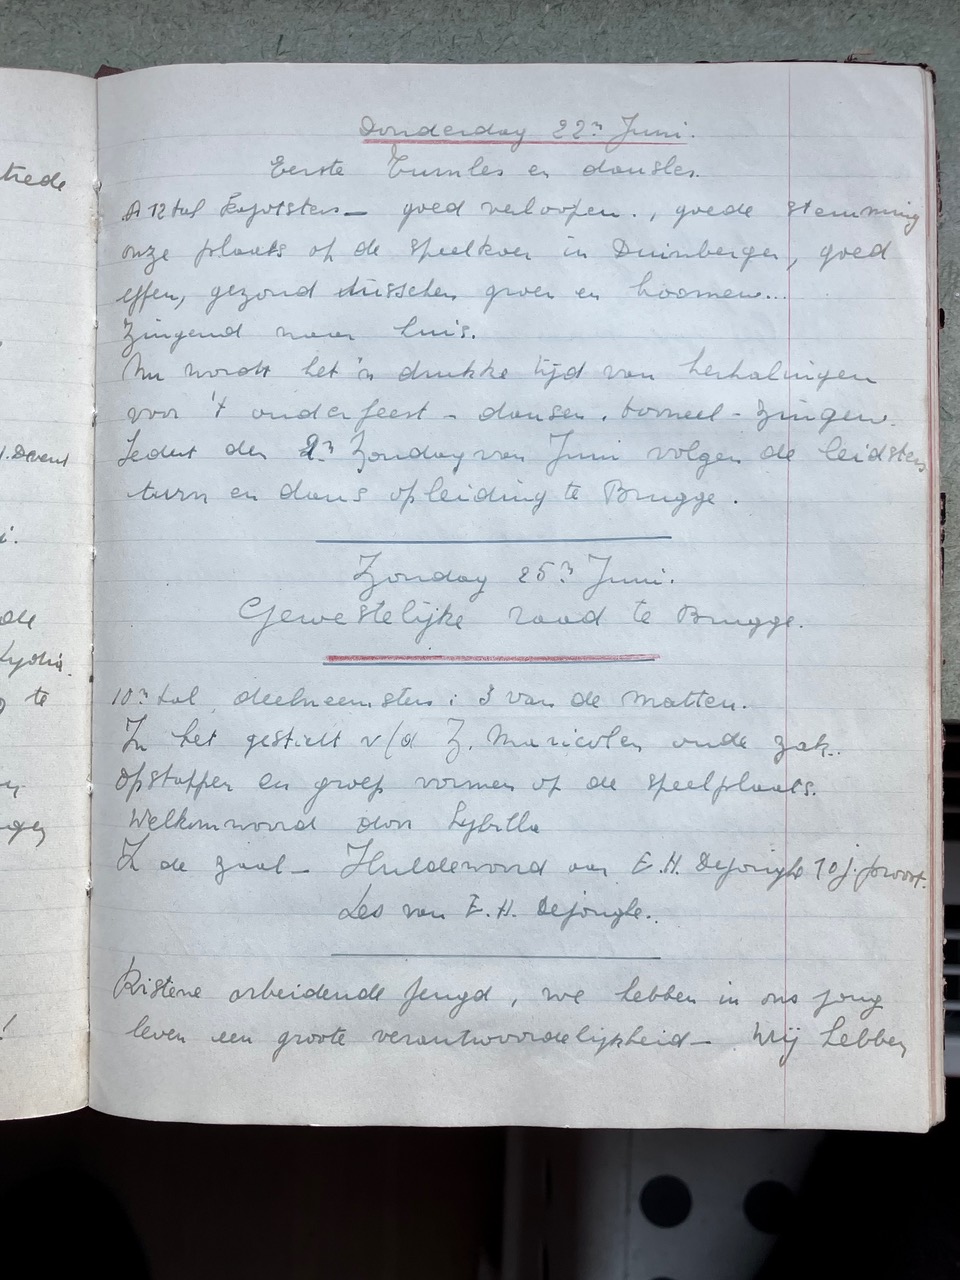 Donderdag 22n Juni.
Eerste Turnles en dansles.
A 12tal Kajotsters — goed verloopen., goede stemming
onze plaats op de speelkoer in Duinbergen, goed
effen, gezond tusschen groen en boomen...
Zingend naar huis.
Nu wordt het 'n drukke tijd van herhalingen
voor 't ouderfeest - dansen. tooneel - zingen.
Sedert den 2n Zondag van Juni volgen de leidsters
turn en dans opleiding te Brugge.
Zondag 25n Juni.
Gewestelijke raad te Brugge.
10n tal deelneemsters: 3 van de Matten.
In het gesticht v/d Z. Maricolen oude zak.
Opstappen en groep vormen op de speelplaats.
Welkomwoord door Sybilla
In de zaal — Huldewoord aan E.H. Dejonghe 10 j. proost.
Les van E.H. Dejonghe..
Kristene arbeidende Jeugd, we hebben in ons jong
leven een groote verantwoordelijkheid — Wij hebben
trede
i.
Lydia.
te
!